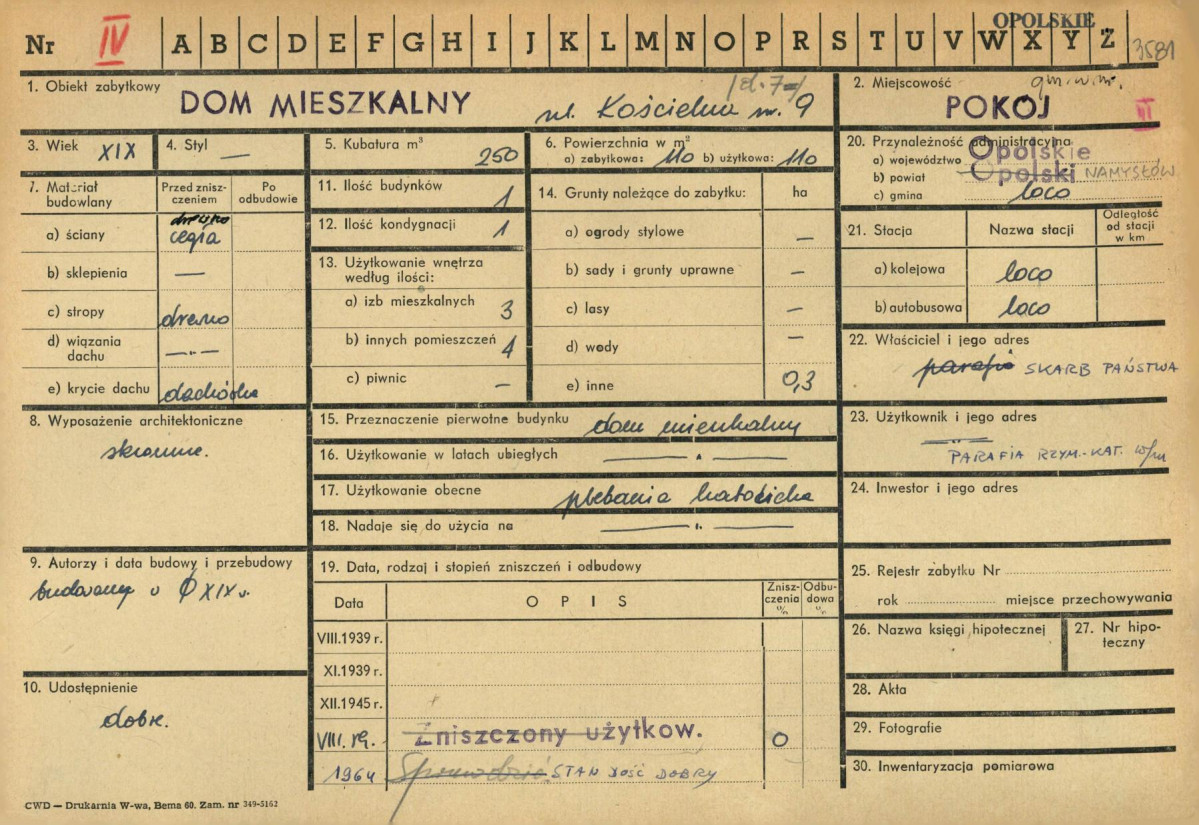 OPOLSKIE
Nr IV A B C D E F G H I J K L M N O P R S T U V W X Y Z 3581
1. Obiekt zabytkowy
DOM MIESZKALNY ul. Kościelna nr. 9
2. Miejscowość
POKÓJ
III
3. Wiek XIX
4. Styl —
5. Kubatura m³ 250
6. Powierzchnia w m²
a) zabytkowa: 110 b) użytkowa: 110
20. Przynależność administracyjna
a) województwo Opolskie
b) powiat Opolski NAMYSŁÓW
c) gmina loco
7. Materiał budowlany
Przed zniszczeniem
Po odbudowie
a) ściany drewno cegła
b) sklepienia —
c) stropy drewno
d) wiązania dachu —„—
e) krycie dachu dachówka
11. Ilość budynków 1
12. Ilość kondygnacji 1
13. Użytkowanie wnętrza według ilości:
a) izb mieszkalnych 3
b) innych pomieszczeń 4
c) piwnic —
14. Grunty należące do zabytku: ha
a) ogrody stylowe —
b) sady i grunty uprawne —
c) lasy —
d) wody —
e) inne 0,3
21. Stacja
Nazwa stacji
Odległość od stacji w km
a) kolejowa loco
b) autobusowa loco
22. Właściciel i jego adres
parafia SKARB PAŃSTWA
8. Wyposażenie architektoniczne
skromne.
15. Przeznaczenie pierwotne budynku dom mieszkalny
16. Użytkowanie w latach ubiegłych —„—
17. Użytkowanie obecne plebania katolicka
18. Nadaje się do użycia na —„—
23. Użytkownik i jego adres
PARAFIA RZYM.-KAT. w/m
24. Inwestor i jego adres
9. Autorzy i data budowy i przebudowy
budowany w Ø XIX w.
10. Udostępnienie
dobre.
19. Data, rodzaj i stopień zniszczeń i odbudowy
Data
OPIS
Zniszczenia %
Odbudowa %
VIII.1939 r.
XI.1939 r.
XII.1945 r.
Zniszczony użytkow. 0
1964 STAN DOŚĆ DOBRY
25. Rejestr zabytku Nr
rok miejsce przechowywania
26. Nazwa księgi hipotecznej
27. Nr hipoteczny
28. Akta
29. Fotografie
30. Inwentaryzacja pomiarowa
CWD — Drukarnia W-wa, Bema 60. Zam. nr 349-5162